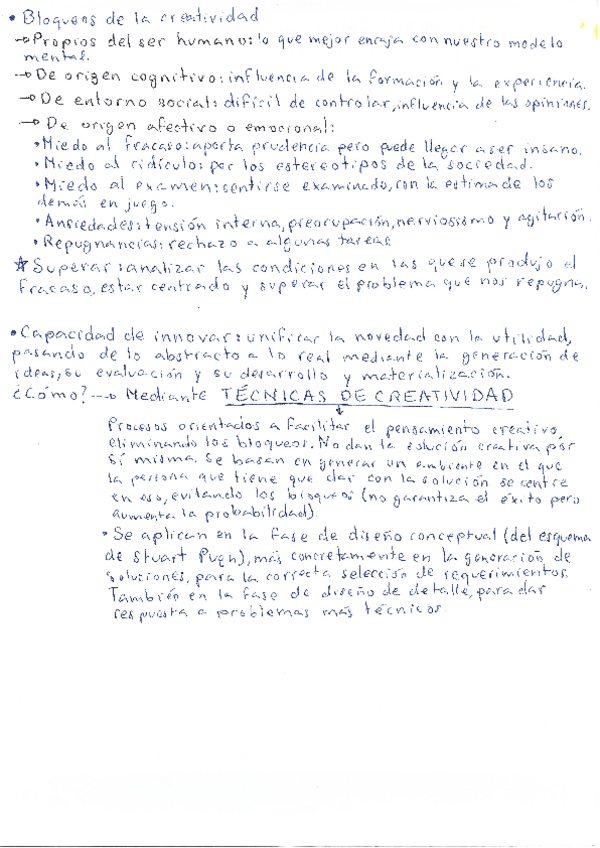 • Bloqueos de la creatividad
→ Propios del ser humano: lo que mejor encaja con nuestro modelo
mental.
→ De origen cognitivo: influencia de la formación y la experiencia.
→ De entorno social: difícil de controlar, influencia de las opiniones.
→ De origen afectivo o emocional:
• Miedo al fracaso: aporta prudencia pero puede llegar a ser insano.
• Miedo al ridículo: por los estereotipos de la sociedad.
• Miedo al examen: sentirse examinado, con la estima de los
demás en juego.
• Ansiedades: tensión interna, preocupación, nerviosismo y agitación.
• Repugnancias: rechazo a algunas tareas
☆ Superar: analizar las condiciones en las que se produjo el
fracaso, estar centrado y superar el problema que nos repugna.
• Capacidad de innovar: unificar la novedad con la utilidad,
pasando de lo abstracto a lo real mediante la generación de
ideas, su evaluación y su desarrollo y materialización.
¿Cómo? → Mediante TÉCNICAS DE CREATIVIDAD
↓
Procesos orientados a facilitar el pensamiento creativo,
eliminando los bloqueos. No dan la solución creativa por
sí misma. Se basan en generar un ambiente en el que
la persona que tiene que dar con la solución se centre
en eso, evitando los bloqueos (no garantiza el éxito pero
aumenta la probabilidad).
• Se aplican en la fase de diseño conceptual (del esquema
de Stuart Pugh), más concretamente en la generación de
soluciones, para la correcta selección de requerimientos.
También en la fase de diseño de detalle, para dar
respuesta a problemas más técnicos.